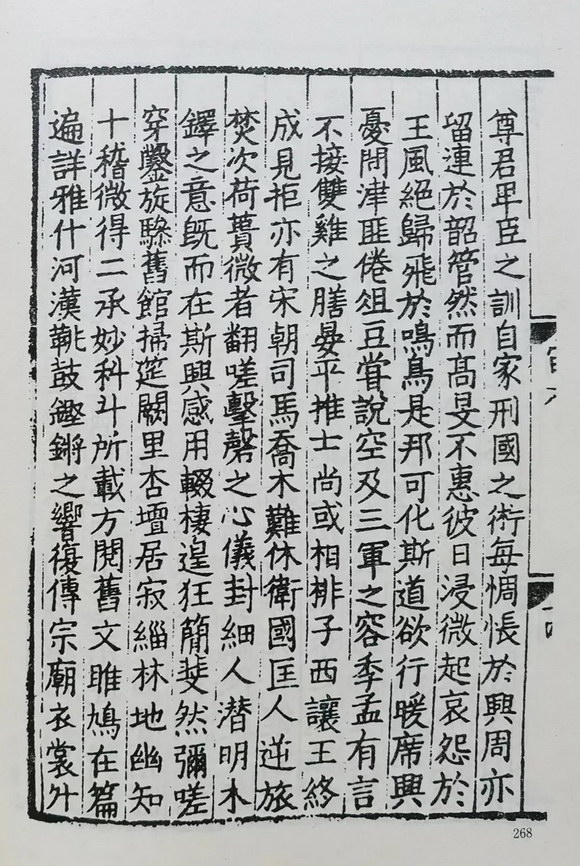 尊君卑臣之訓自家刑國之術每惆悵於興周亦
留連於韶管然而髙旻不惠彼日浸微起哀怨於
王風絕歸飛於鳴鳥是邦可化斯道欲行暖席興
憂問津匪倦俎豆甞說空及三軍之容季孟有言
不接雙雞之膳晏平推士尚或相排子西讓王終
成見拒亦有宋朝司馬喬木難休衛國匡人逆旅
焚次荷蕢微者翻嗟擊磬之心儀封細人潜明木
鐸之意旣而在斯興感用輟棲遑狂簡斐然彌嗟
穿鑿旋驂舊館掃筵闕里杏壇居寂緇林地幽知
十稽微得二承妙科斗所載方閱舊文雎鳩在篇
遍詳雅什河漢鞉鼓鏗鏘之響復傳宗廟衣裳升
268